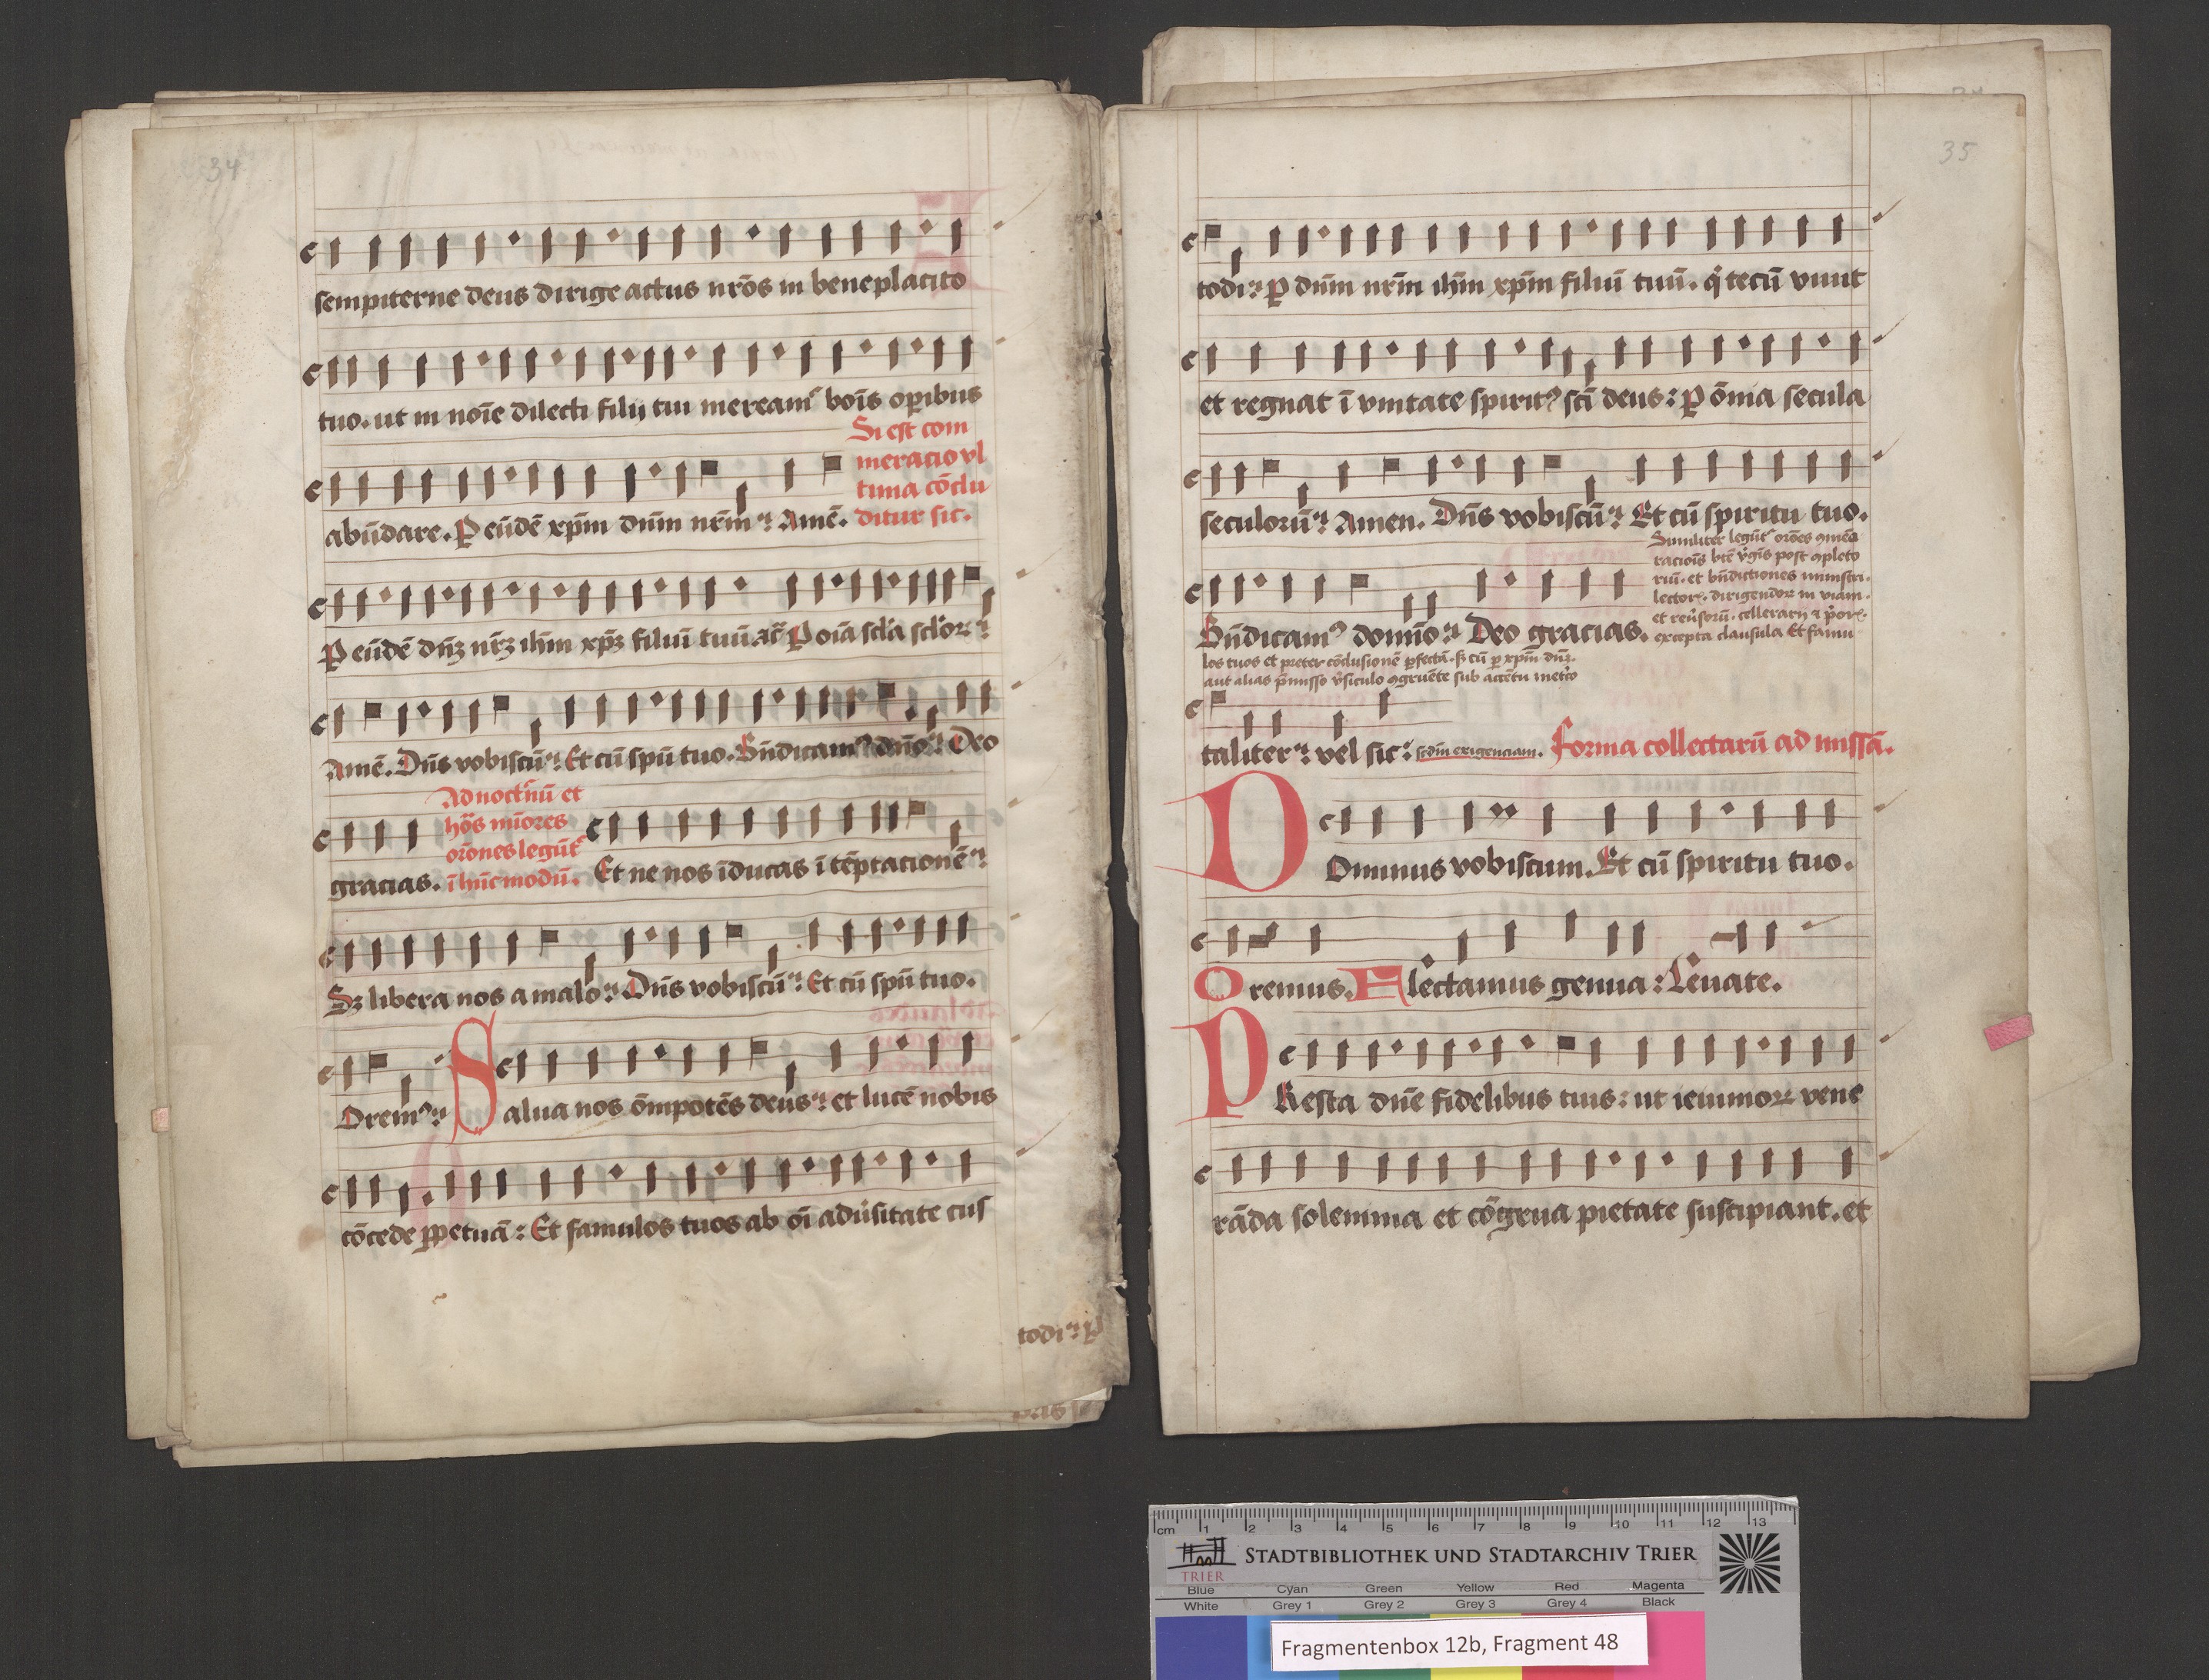 34
sempiterne deus dirige actus nr̄os in beneplacito
tuo. ut in noīe dilecti filij tui meream᷑ boīs oꝑibus
Si est com
meracio vl
abūdare. P eūdē xp̄m dn̄m nr̄m. Amē.
tima cōclu
ditur sic.
P eūdē dn̄ꝫ nr̄ꝫ ih̄m xp̄ꝫ filiū tuū. ac̄ P oīa scl̄a scl̄oꝝ
Amē. Dn̄s vobiscū. Et cū spū tuo. Bn̄dicamꝰ dn̄o. Deo
gracias.
Ad noct̄nū et
hōs mīores
or̄ones legūt᷑
ī hūc modū.
Et ne nos īducas ī tēptacionē
Sꝫ libera nos a malo. Dn̄s vobiscū. Et cū spū tuo.
Oremꝰ. Salua nos ōmpotēs deus. et lucē nobis
cōcede ꝑpetuā: Et famulos tuos ab oī adūsitate cus
todi. ꝑ
35
todi. P dn̄m nr̄m ih̄m xp̄m filiū tuū. q̇ tecū viuit
et regnat ī vnitate spiritꝰ scī deus: P ōnia secula
seculorū. Amen. Dn̄s vobiscū. Et cū spiritu tuo.
Bn̄dicamꝰ domīo. Deo gracias.
Similiter legūt᷑ or̄oēs ꝯmēo
racioīs btē v̄gīs post ꝯpleto
riū. et bn̄dictiones ministri.
lectoꝝ. dirigendoꝝ in viam.
et reūsorū. cellerarij ⁊ p̄oꝝ.
excepta clausula Et famu
los tuos et preter cōclusionē ꝑfectā. sꝫ cū ꝑ xp̄m dn̄ꝫ.
aut alias p̄misso v̄siculo ꝯgruēte sub accētu met̄co
taliter. vel sic: scdm̄ exigenciam. Forma collectarū ad missā.
Dominus vobiscum. Et cū spiritu tuo.
Oremus. Flectamus genua: Leuate.
PResta dn̄e fidelibus tuis: ut ieiunioꝝ vene
rāda solemnia et cōgrua pietate suscipiant. et
cm 1 2 3 4 5 6 7 8 9 10 11 12 13
STADTBIBLIOTHEK UND STADTARCHIV TRIER
TRIER
Blue Cyan Green Yellow Red Magenta
White Grey 1 Grey 2 Grey 3 Grey 4 Black
Fragmentenbox 12b, Fragment 48